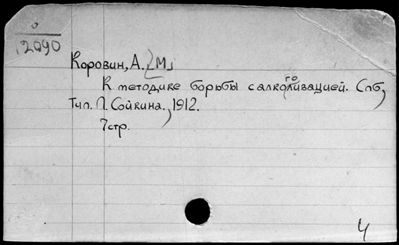 0
12090
Коровин, А. [М.]
К методике борьбы с алкоголизацией. Спб,
Тип. П. Сойкина, 1912.
7 стр.
4